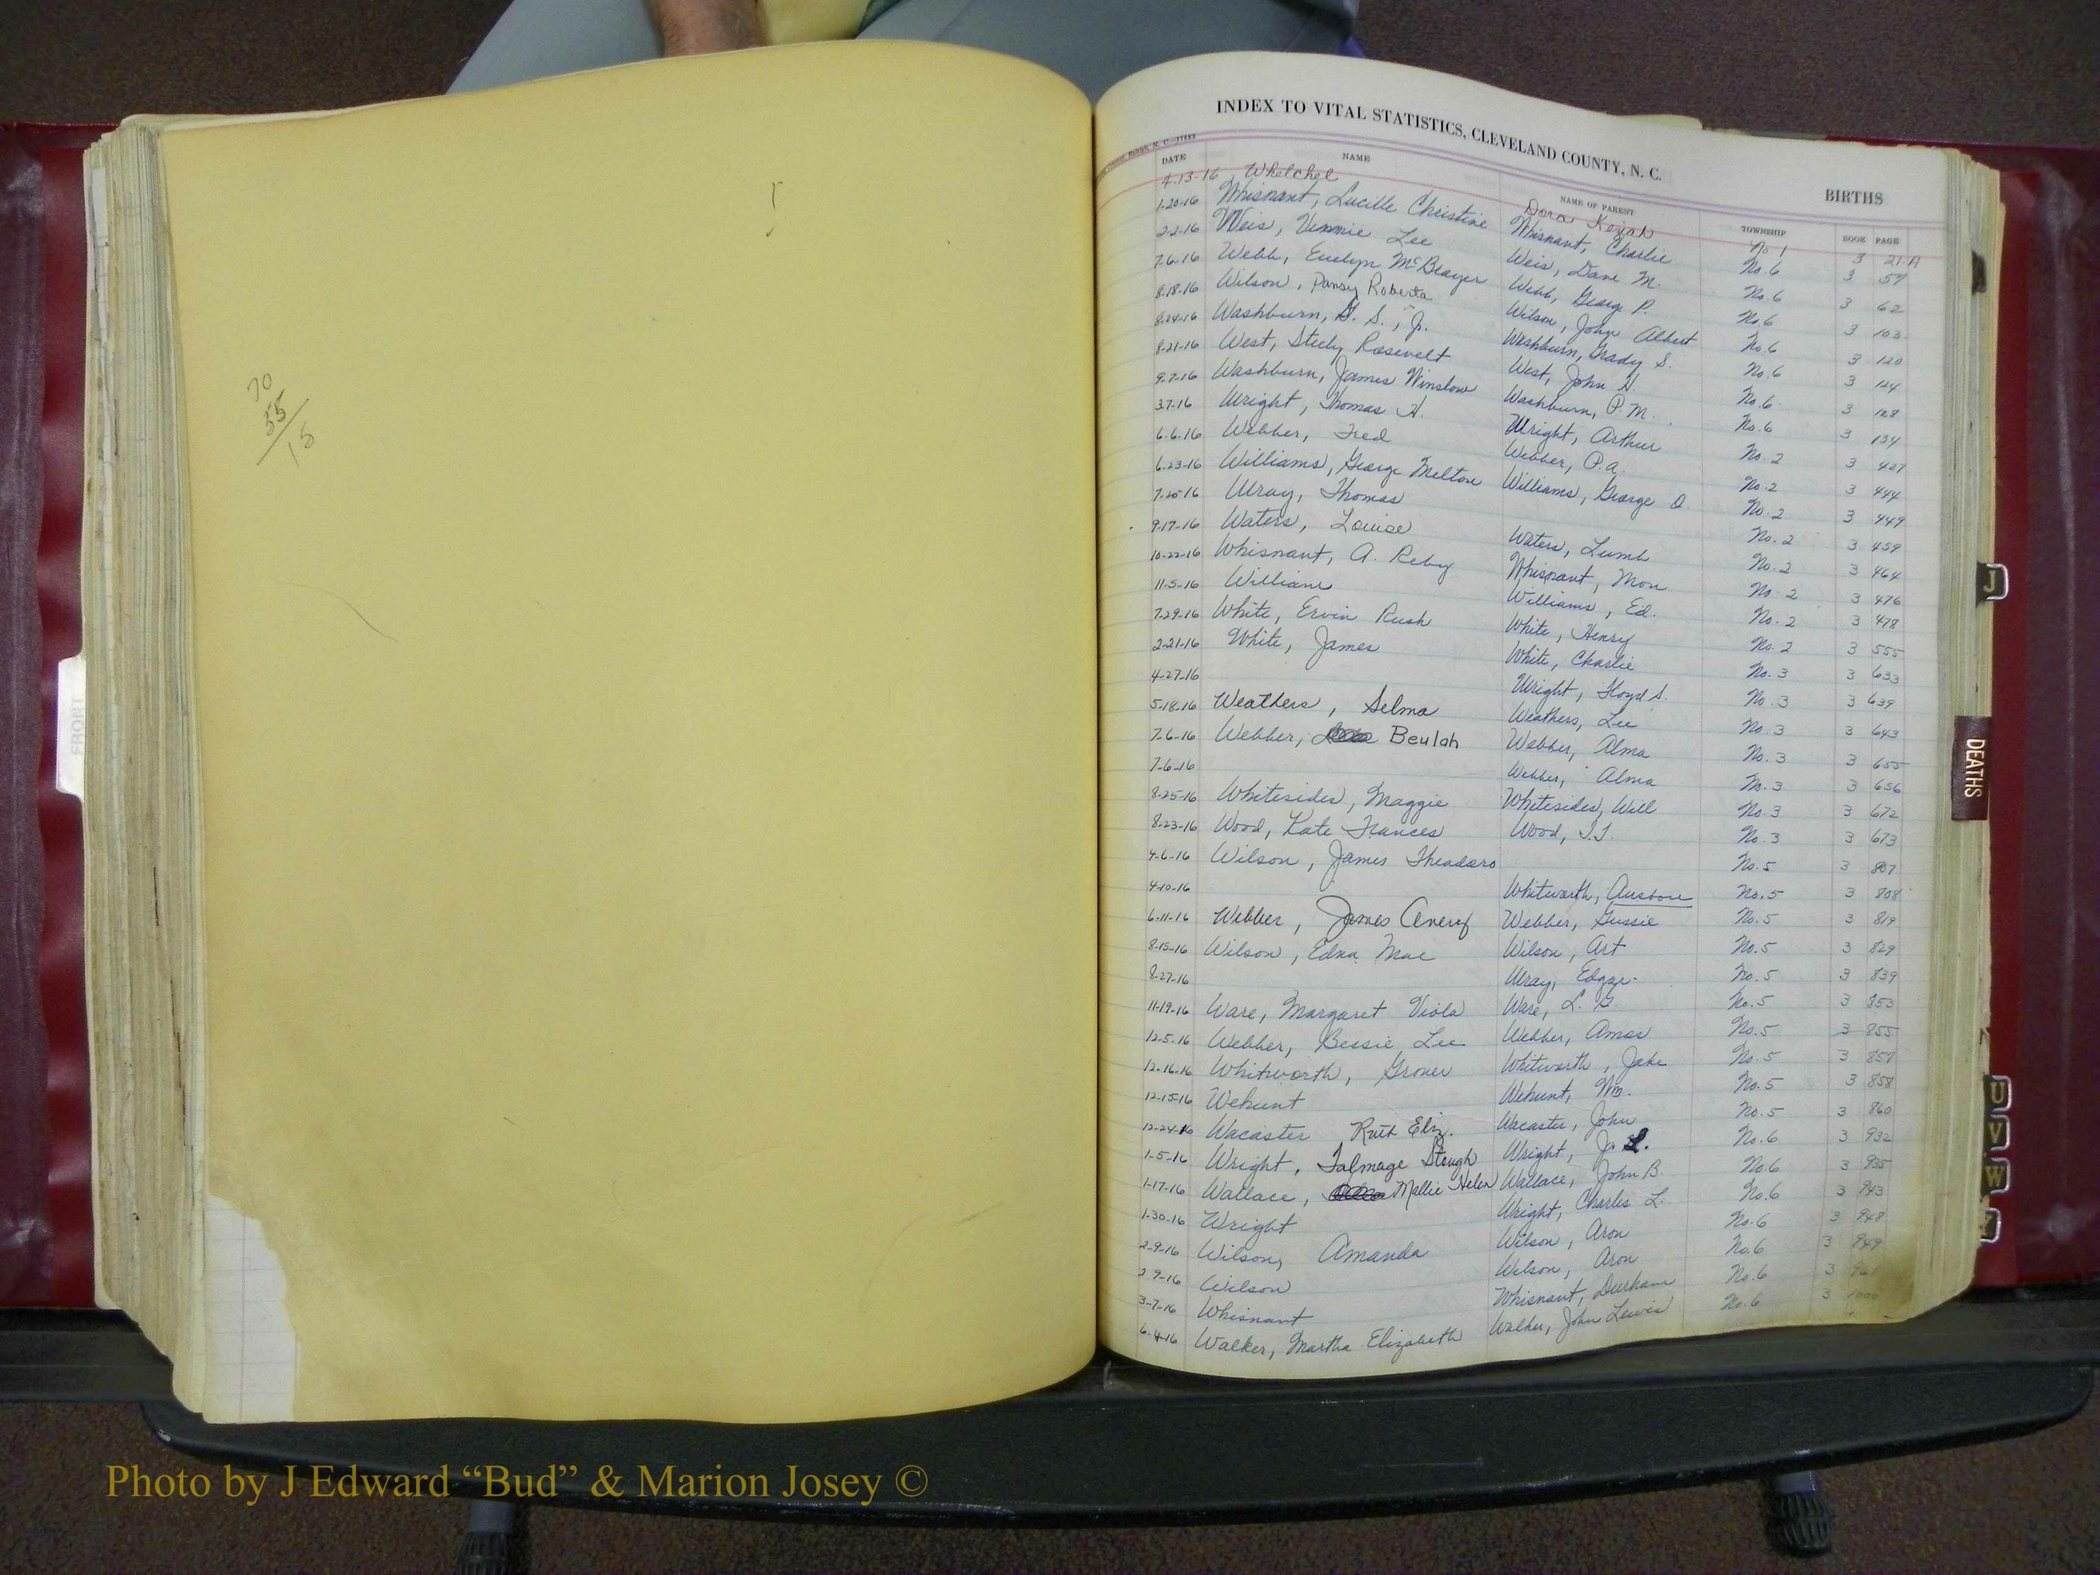 70
55
15
INDEX TO VITAL STATISTICS, CLEVELAND COUNTY, N. C.
BIRTHS
DATE NAME NAME OF PARENT TOWNSHIP BOOK PAGE
4-13-16 Whelchel Dora Kezah No 1 3 21 A
1-20-16 Whisnant, Lucille Christine Whisnant, Charlie No. 6 3 57
2-2-16 Weis, Vennie Lee Weis, Dave M. No. 6 3 62
7-6-16 Webb, Evelyn McBrayer Webb, George P. No. 6 3 103
8-18-16 Wilson, Pansy Roberta Wilson, John Albert No. 6 3 120
8-24-16 Washburn, G. S., Jr. Washburn, Grady S. No. 6 3 124
8-21-16 West, Steely Roosevelt West, John H. No. 6 3 128
9-7-16 Washburn, James Winslow Washburn, P. M. No. 6 3 134
3-7-16 Wright, Thomas H. Wright, Arthur No. 2 3 427
6-6-16 Webber, Fred Webber, P. A. No. 2 3 444
6-23-16 Williams, George Melton Williams, George D. No. 2 3 449
7-20-16 Wray, Thomas No. 2 3 459
9-17-16 Waters, Louise Waters, Lumb No. 2 3 464
10-22-16 Whisnant, A. Reby Whisnant, Mon No. 2 3 476
11-5-16 William Williams, Ed. No. 2 3 478
7-29-16 White, Ervin Rush White, Henry No. 2 3 555
2-21-16 White, James White, Charlie No. 3 3 633
4-27-16 Wright, Floyd S. No. 3 3 639
5-18-16 Weathers, Selma Weathers, Lee No. 3 3 643
7-6-16 Webber, Beulah Webber, Alma No. 3 3 655
7-6-16 Webber, Alma No. 3 3 656
8-25-16 Whitesides, Maggie Whitesides, Will No. 3 3 672
8-23-16 Wood, Kate Frances Wood, J. T. No. 3 3 673
4-6-16 Wilson, James Theadoro No. 5 3 807
4-10-16 Whitworth, Ausbon No. 5 3 808
6-11-16 Webber, James Avery Webber, Gussie No. 5 3 819
8-15-16 Wilson, Edna Mae Wilson, Art No. 5 3 829
8-27-16 Wray, Edgar No. 5 3 839
11-19-16 Ware, Margaret Viola Ware, L. G. No. 5 3 853
12-5-16 Webber, Bessie Lee Webber, Amos No. 5 3 855
12-16-16 Whitworth, Grover Whitworth, Jake No. 5 3 857
12-15-16 Wehunt Wehunt, Wm. No. 5 3 858
12-24-16 Wacaster Ruth Eliz. Wacaster, John No. 5 3 860
1-5-16 Wright, Talmage Stough Wright, No. 6 3 932
1-17-16 Wallace, Mallie Helen Wallace, John B. No. 6 3 935
1-30-16 Wright Wright, Charles L. No. 6 3 943
2-9-16 Wilson, Amanda Wilson, Aron No. 6 3 948
2-9-16 Wilson Wilson, Aron No. 6 3 949
3-7-16 Whisnant Whisnant, Durham No. 6 3 961
6-4-16 Walker, Martha Elizabeth Walker, John Lewis No. 6 3 1000
FRONT
J
DEATHS
U
V
W
Photo by J Edward “Bud” & Marion Josey ©